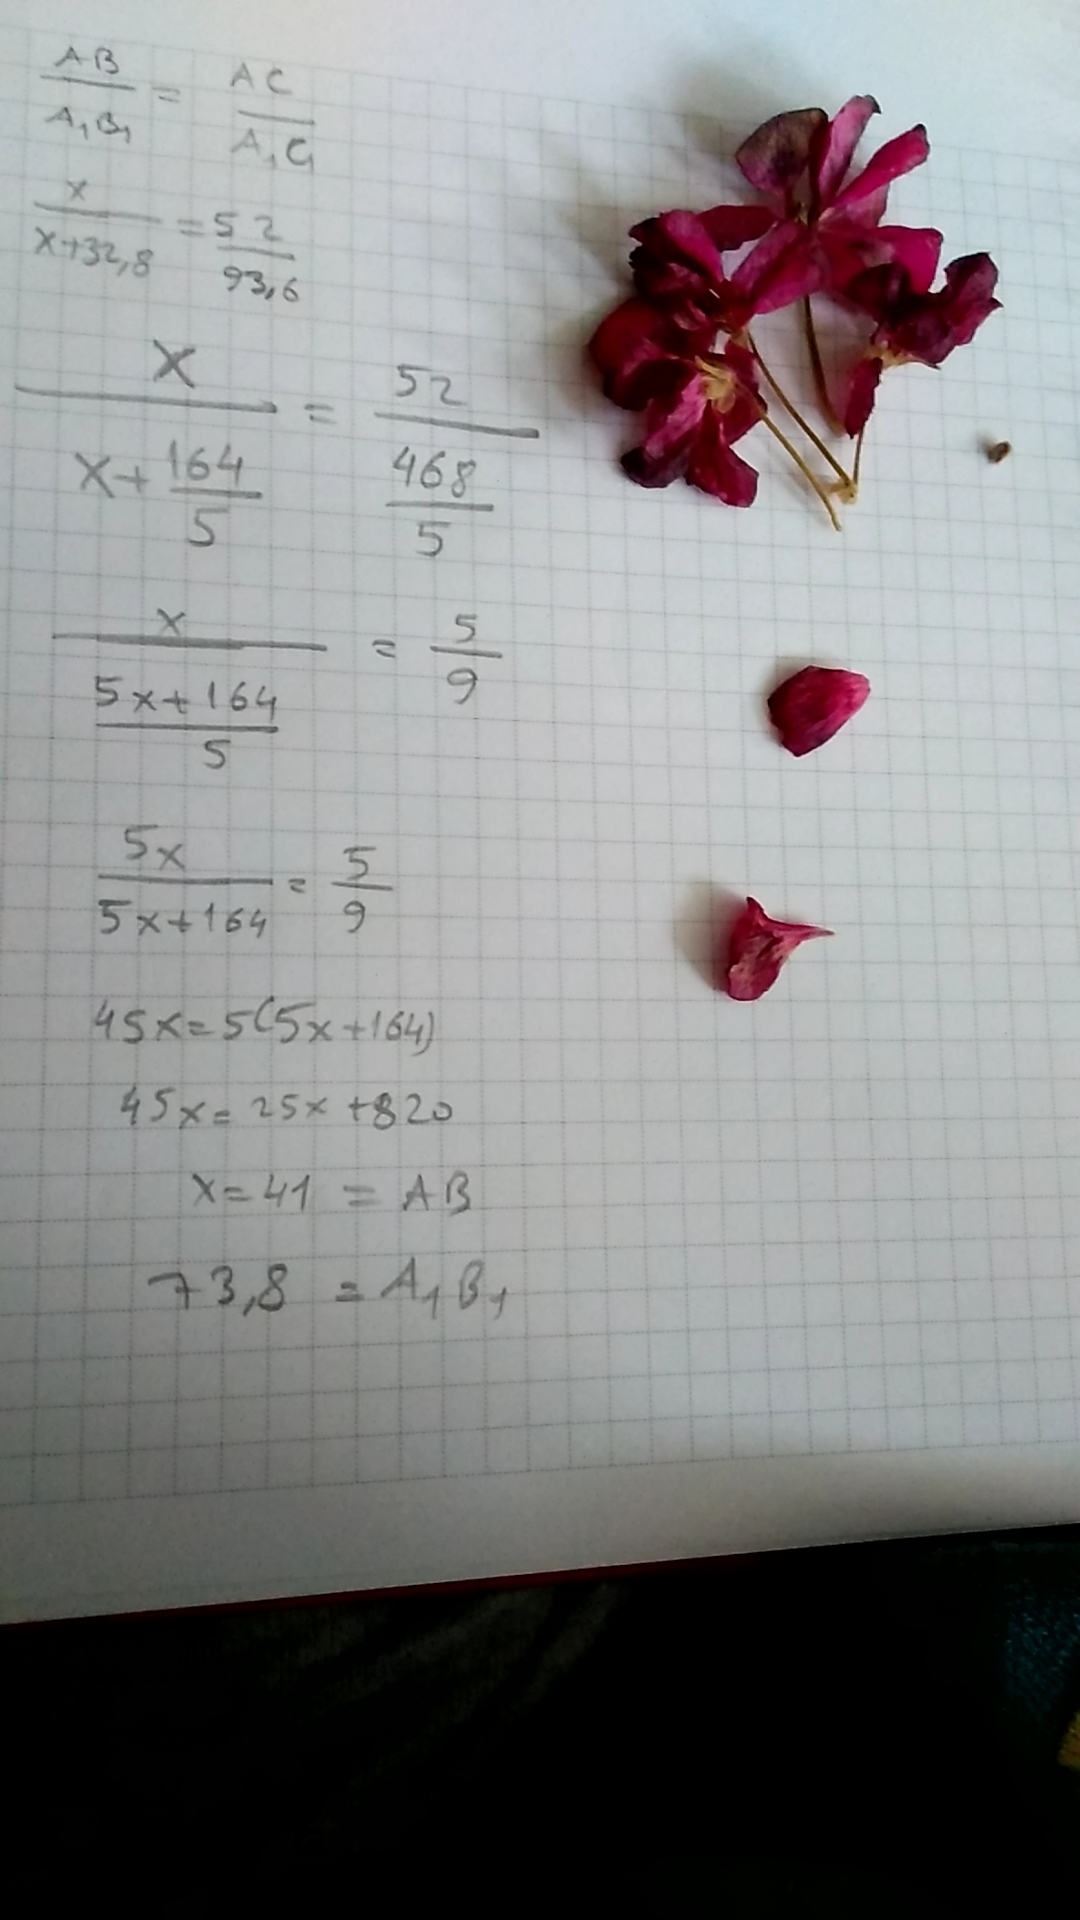 AB/A₁B₁ = AC/A₁C₁
x/(x+32,8) = 52/93,6
x/(x+164/5) = 52/(468/5)
x/((5x+164)/5) = 5/9
5x/(5x+164) = 5/9
45x=5(5x+164)
45x=25x+820
x=41 = AB
73,8 = A₁B₁